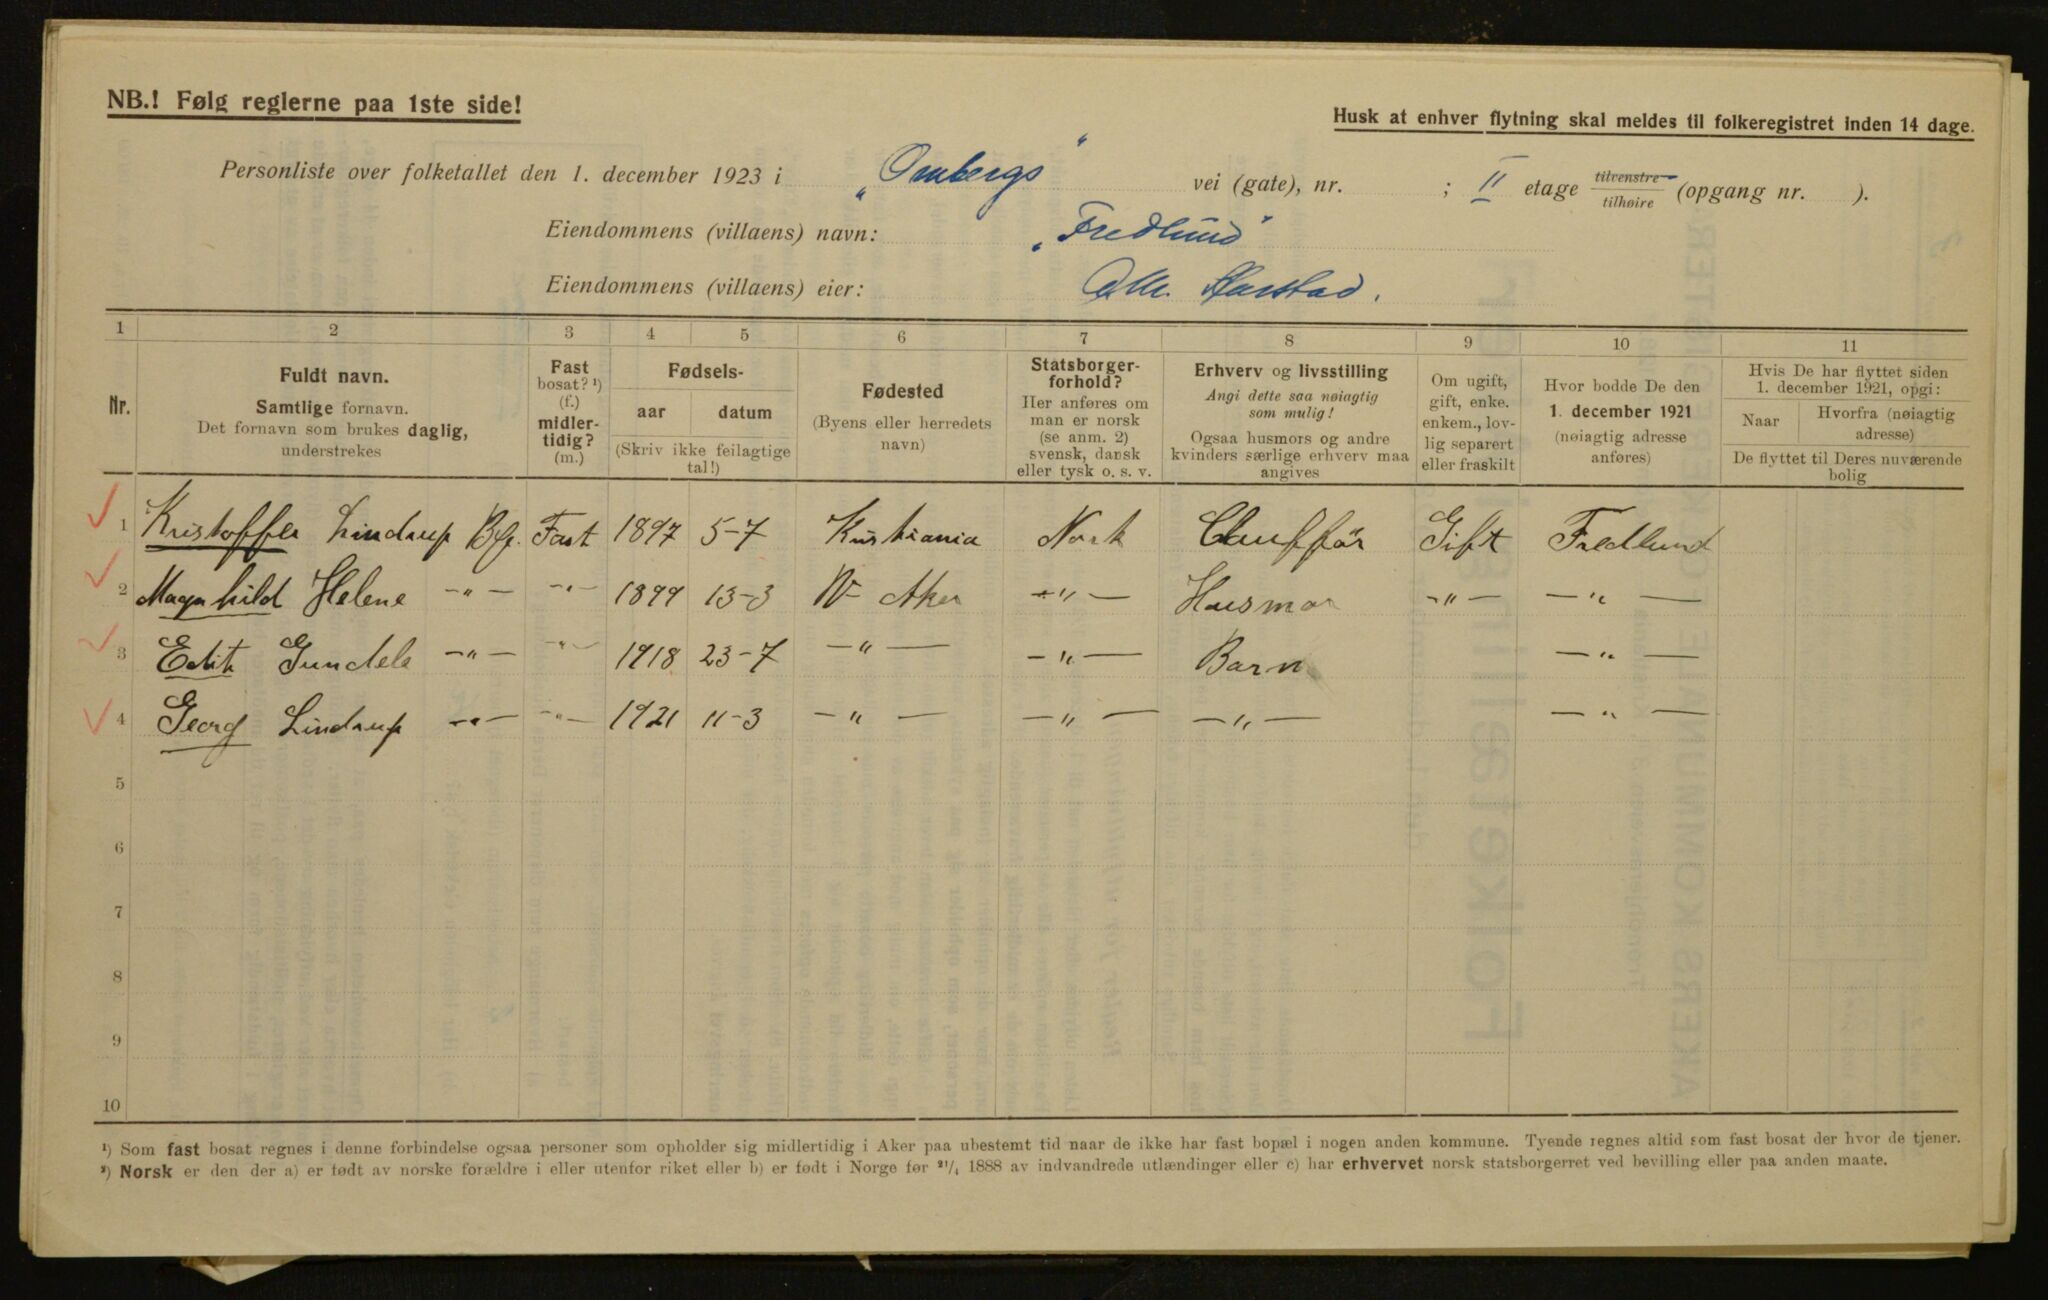 NB.! Følg reglerne paa 1ste side!
Husk at enhver flytning skal meldes til folkeregistret inden 14 dage.
Personliste over folketallet den 1. december 1923 i „Ombergs" vei (gate), nr. ; II etage tilvenstre tilhøire (opgang nr. ).
Eiendommens (villaens) navn: „Fredlund"
Eiendommens (villaens) eier: Harstad.
1 2 3 4 5 6 7 8 9 10 11
Nr.
Fuldt navn.
Samtlige fornavn.
Det fornavn som brukes daglig,
understrekes
Fast
bosat? ¹)
(f.)
midler-
tidig?
(m.)
Fødsels-
aar datum
(Skriv ikke feilagtige
tal!)
Fødested
(Byens eller herredets
navn)
Statsborger-
forhold?
Her anføres om
man er norsk
(se anm. 2)
svensk, dansk
eller tysk o. s. v.
Erhverv og livsstilling
Angi dette saa nøiagtig
som mulig!
Ogsaa husmors og andre
kvinders særlige erhverv maa
angives
Om ugift,
gift, enke.
enkem., lov-
lig separert
eller fraskilt
Hvor bodde De den
1. december 1921
(nøiagtig adresse
anføres)
Hvis De har flyttet siden
1. december 1921, opgi:
Naar Hvorfra (nøiagtig
adresse)
De flyttet til Deres nuværende
bolig
1 Kristoffer Lindrup Fast 1897 5-7 Kristiania Norsk Chauffør Gift Fredlund
2 Magnhild Helene -„- -„- 1899 13-3 V Aker -„- Husmor -„- -„-
3 Edit Gundele -„- -„- 1918 23-7 -„- -„- Barn -„-
4 Georg Lindrup -„- -„- 1921 11-3 -„- -„- -„- -„-
5
6
7
8
9
10
¹) Som fast bosat regnes i denne forbindelse ogsaa personer som opholder sig midlertidig i Aker paa ubestemt tid naar de ikke har fast bopæl i nogen anden kommune. Tyende regnes altid som fast bosat der hvor de tjener.
²) Norsk er den der a) er født av norske forældre i eller utenfor riket eller b) er født i Norge før ²¹/₄ 1888 av indvandrede utlændinger eller c) har erhvervet norsk statsborgerret ved bevilling eller paa anden maate.